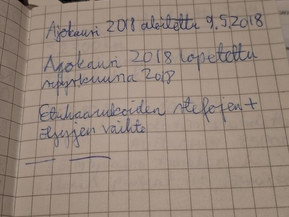 Ajokausi 2018 aloitettu 9.5.2018
Ajokausi 2018 lopetettu
syyskuuna 2018
Etuhaarukoiden stefojen +
öljyjen vaihto